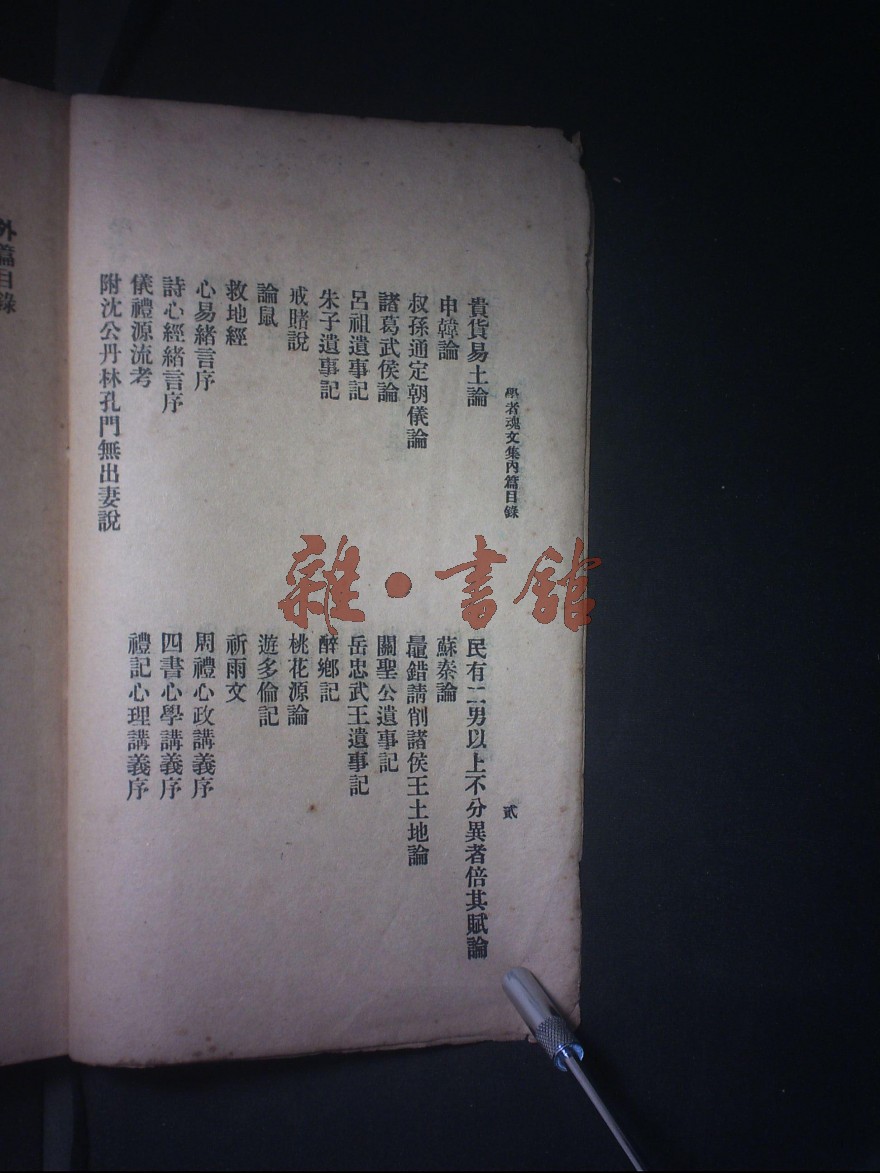 學者魂文集內篇目錄
貳
貴貨易土論
民有二男以上不分異者倍其賦論
申韓論
蘇秦論
叔孫通定朝儀論
鼂錯請削諸侯王土地論
諸葛武侯論
關聖公遺事記
呂祖遺事記
岳忠武王遺事記
朱子遺事記
醉鄉記
戒賭說
桃花源論
論鼠
遊多倫記
救地經
祈雨文
心易緒言序
周禮心政講義序
詩心經緒言序
四書心學講義序
儀禮源流考
禮記心理講義序
附沈公丹林孔門無出妻說
外篇目錄
雜·書館